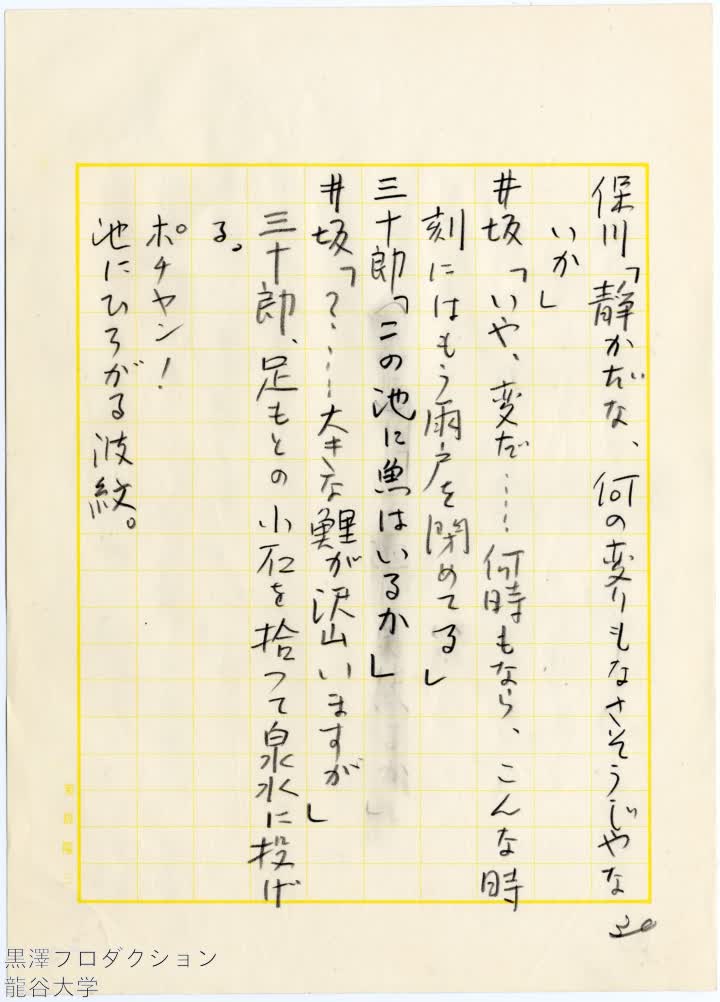 保川「静かだな、何の変りもなさそうじゃな
いか」
井坂「いや、変だ……何時もなら、こんな時
刻にはもう雨戸を閉めてる」
三十郎「この池に魚はいるか」
井坂「？……大きな鯉が沢山いますが」
三十郎、足もとの小石を拾って泉水に投げ
る。
ポチャン！
池にひろがる波紋。
黒澤プロダクション
龍谷大学